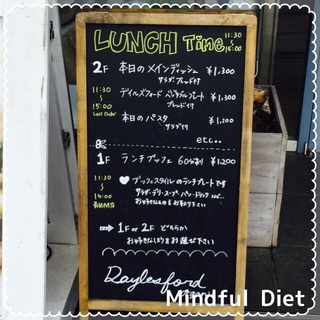 LUNCH Time 11:30～15:00
2F 本日のメインディッシュ ¥1,300
サラダ・ブレッド付
11:30～15:00 Last Order
デイルズフォード ベジタブルプレート ¥1,300
ブレッド付
本日のパスタ ¥1,200
サラダ付
etc..
1F ランチブッフェ 60分制 ¥1,200
11:30～14:00
♥ブッフェスタイルのランチプレートです
サラダ・デリ・スープ・パン・ドリンク etc...
お好きなものをお取り下さい
⇒ 1F or 2F どちらか
お好きなほうをお選び下さい
Daylesford
Mindful Diet